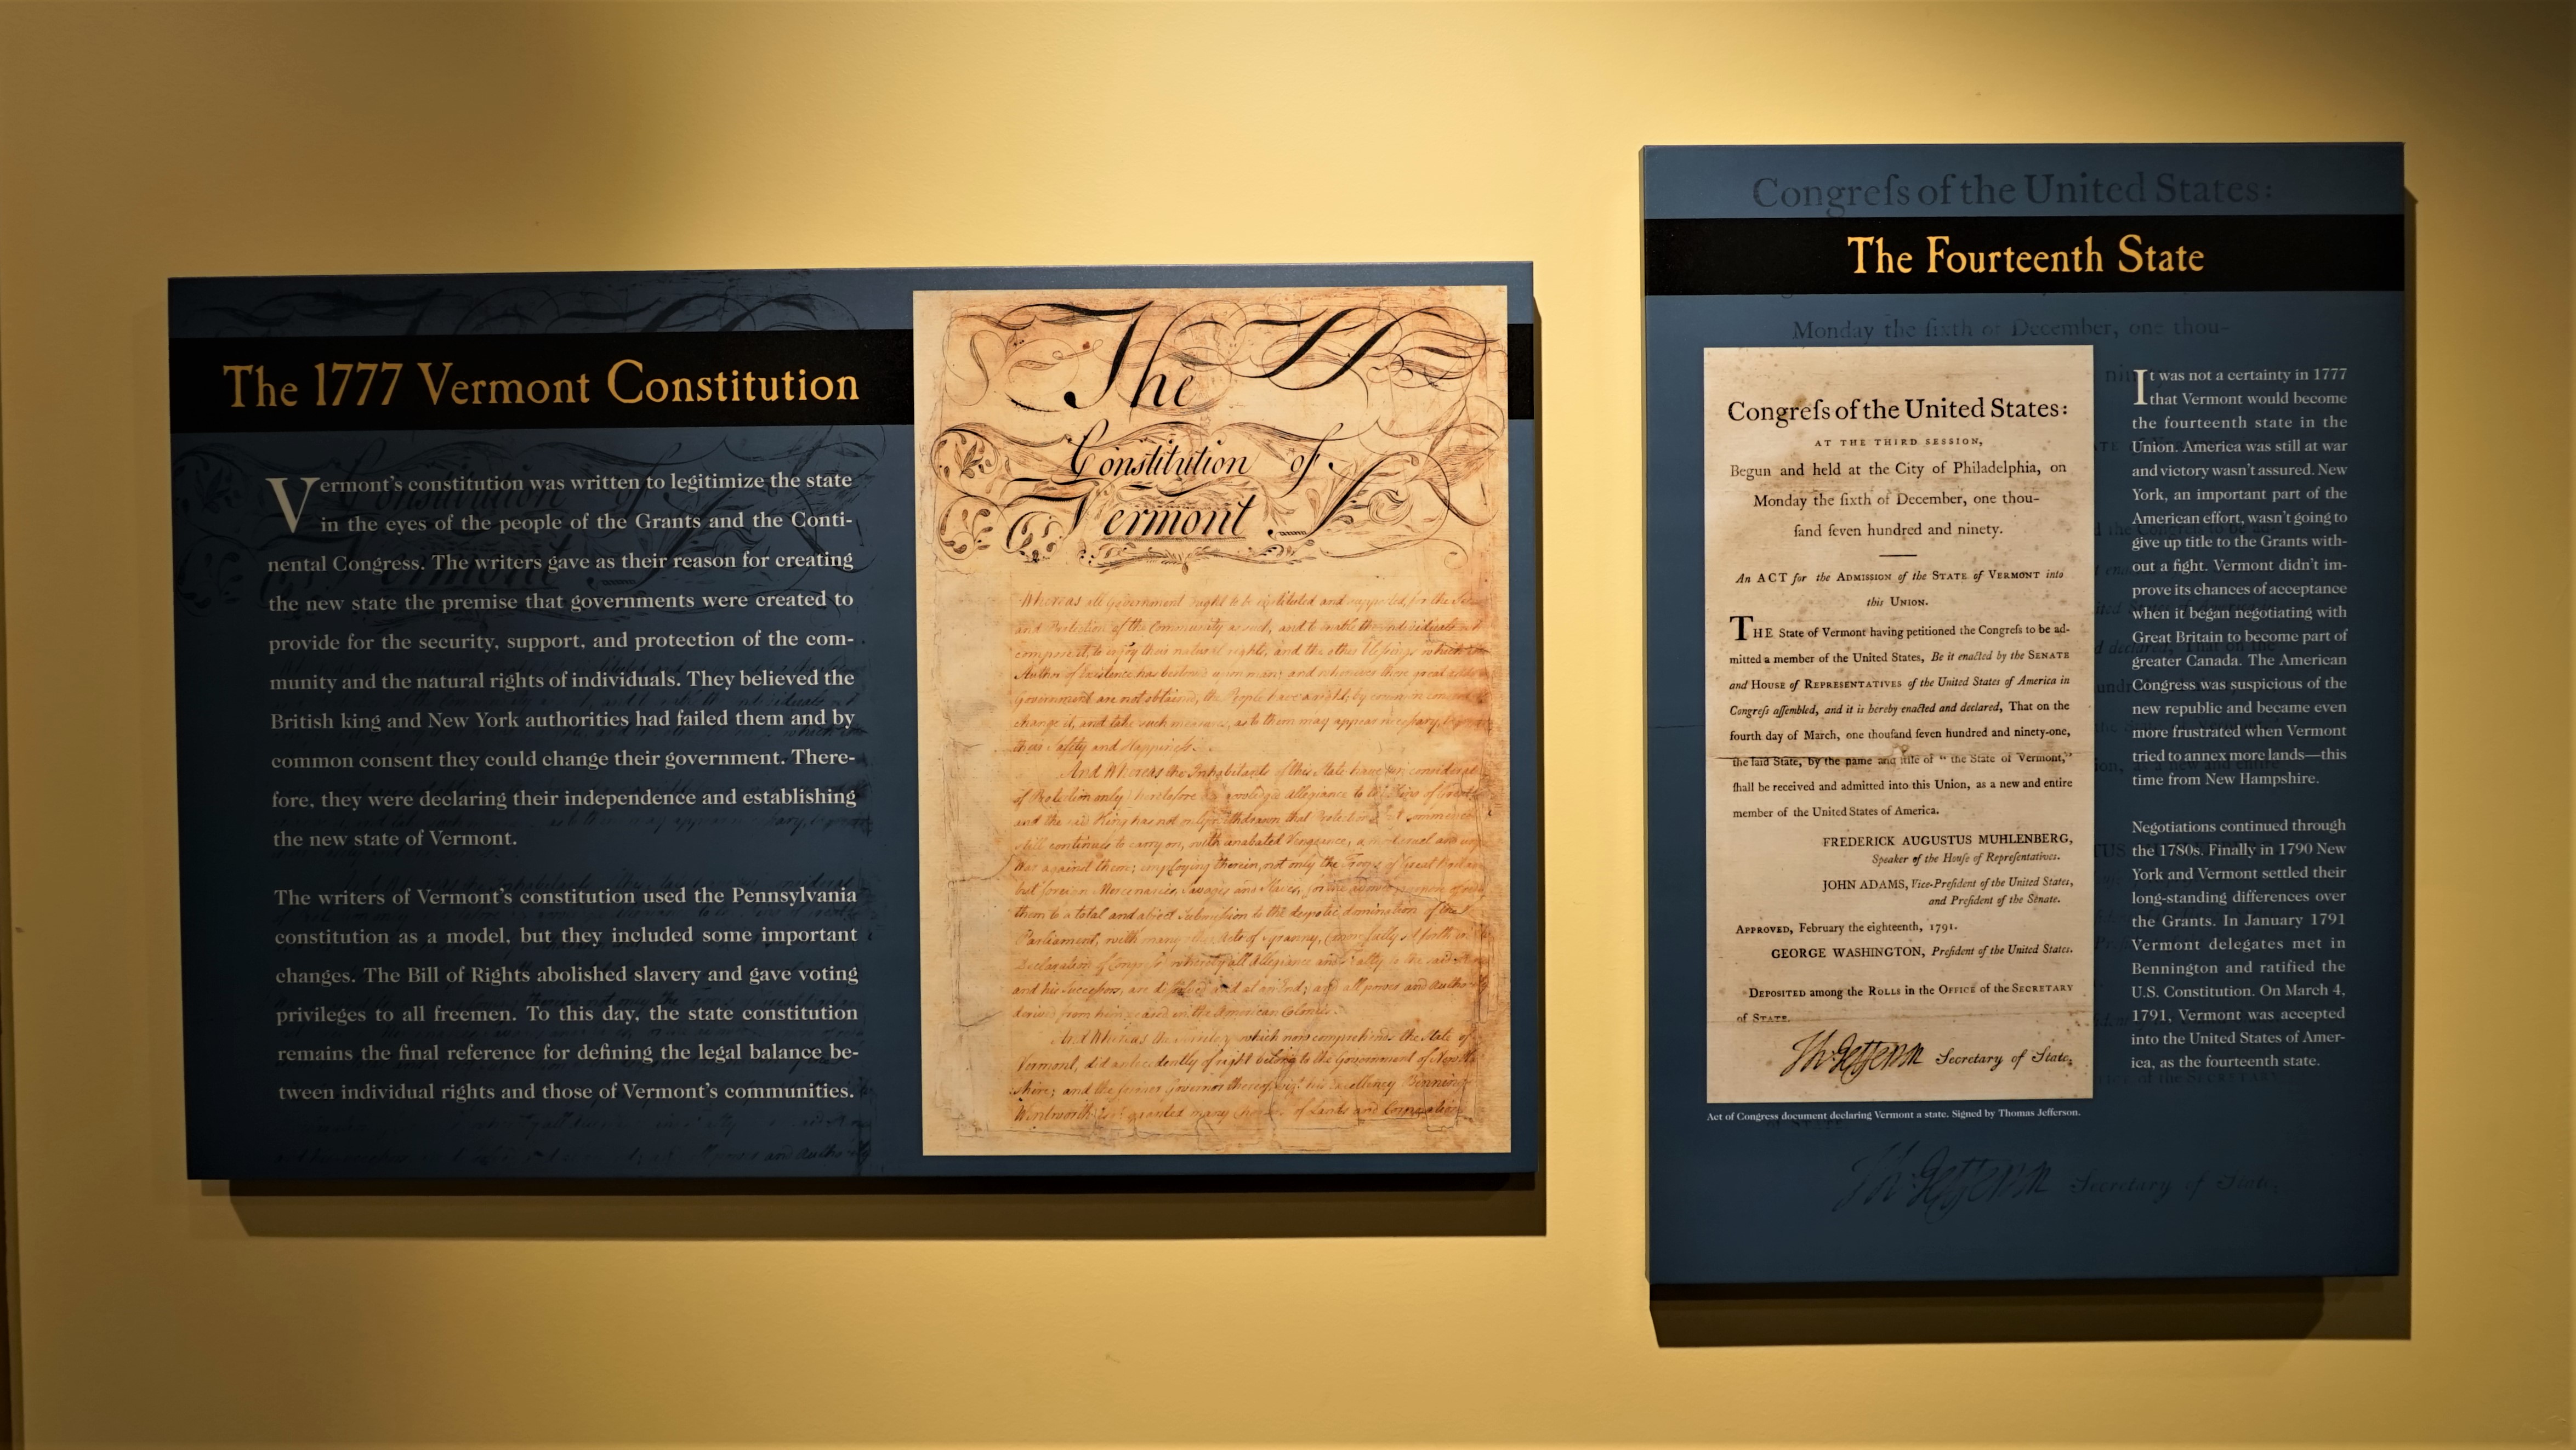 The 1777 Vermont Constitution
Vermont's constitution was written to legitimize the state
in the eyes of the people of the Grants and the Conti-
nental Congress. The writers gave as their reason for creating
the new state the premise that governments were created to
provide for the security, support, and protection of the com-
munity and the natural rights of individuals. They believed the
British king and New York authorities had failed them and by
common consent they could change their government. There-
fore, they were declaring their independence and establishing
the new state of Vermont.
The writers of Vermont's constitution used the Pennsylvania
constitution as a model, but they included some important
changes. The Bill of Rights abolished slavery and gave voting
privileges to all freemen. To this day, the state constitution
remains the final reference for defining the legal balance be-
tween individual rights and those of Vermont's communities.
The
Constitution of
Vermont
Whereas all Government ought to be instituted and supported, for the
and Protection of the Community as such, and to enable the individuals
compose it, to enjoy their natural rights, and the other Blessings which the
Author of Existence has bestowed upon man; and whenever those great
Government are not obtained, the People have a right, by common consent
change it, and take such measures, as to them may appear necessary,
their Safety and Happiness.
And Whereas the Inhabitants of this State have
of Protection only) heretofore allegiance to the King of
and the said King has not only withdrawn that Protection
still continues to carry on, with unabated Vengeance, a most cruel and
War against them; employing therein, not only the Troops of Great Britain
but foreign Mercenaries, Savages and Slaves, for the
them to a total and abject Submission to the despotic domination of the
Parliament, with many other Acts of Tyranny, (more fully set forth in
Declaration of Congress) whereby all Allegiance and Fealty to the said
and his Successors, are dissolved and at an End; and all power and Authority
derived from him, ceased in the American Colonies.
And Whereas the territory, which now comprehends the State of
Vermont, did antecedently of right belong to the Government of
shire; and the former Governor thereof, viz. his Excellency Benning
Wentworth granted many of Lands and Corporations
Congreſs of the United States:
The Fourteenth State
Monday the ſixth of December, one thou-
Congreſs of the United States:
AT THE THIRD SESSION,
Begun and held at the City of Philadelphia, on
Monday the ſixth of December, one thou-
ſand ſeven hundred and ninety.
An ACT for the ADMISSION of the STATE of VERMONT into
this UNION.
THE State of Vermont having petitioned the Congreſs to be ad-
mitted a member of the United States, Be it enacted by the SENATE
and HOUSE of REPRESENTATIVES of the United States of America in
Congreſs aſſembled, and it is hereby enacted and declared, That on the
fourth day of March, one thouſand ſeven hundred and ninety-one,
the ſaid State, by the name and ſtile of "the State of Vermont,"
ſhall be received and admitted into this Union, as a new and entire
member of the United States of America.
FREDERICK AUGUSTUS MUHLENBERG,
Speaker of the Houſe of Repreſentatives.
JOHN ADAMS, Vice-Preſident of the United States,
and Preſident of the Senate.
APPROVED, February the eighteenth, 1791.
GEORGE WASHINGTON, Preſident of the United States.
DEPOSITED among the ROLLS in the OFFICE of the SECRETARY
of STATE.
Th: Jefferson Secretary of State.
Act of Congress document declaring Vermont a state. Signed by Thomas Jefferson.
It was not a certainty in 1777
that Vermont would become
the fourteenth state in the
Union. America was still at war
and victory wasn't assured. New
York, an important part of the
American effort, wasn't going to
give up title to the Grants with-
out a fight. Vermont didn't im-
prove its chances of acceptance
when it began negotiating with
Great Britain to become part of
greater Canada. The American
Congress was suspicious of the
new republic and became even
more frustrated when Vermont
tried to annex more lands—this
time from New Hampshire.
Negotiations continued through
the 1780s. Finally in 1790 New
York and Vermont settled their
long-standing differences over
the Grants. In January 1791
Vermont delegates met in
Bennington and ratified the
U.S. Constitution. On March 4,
1791, Vermont was accepted
into the United States of Amer-
ica, as the fourteenth state.
Th: Jefferson Secretary of State.